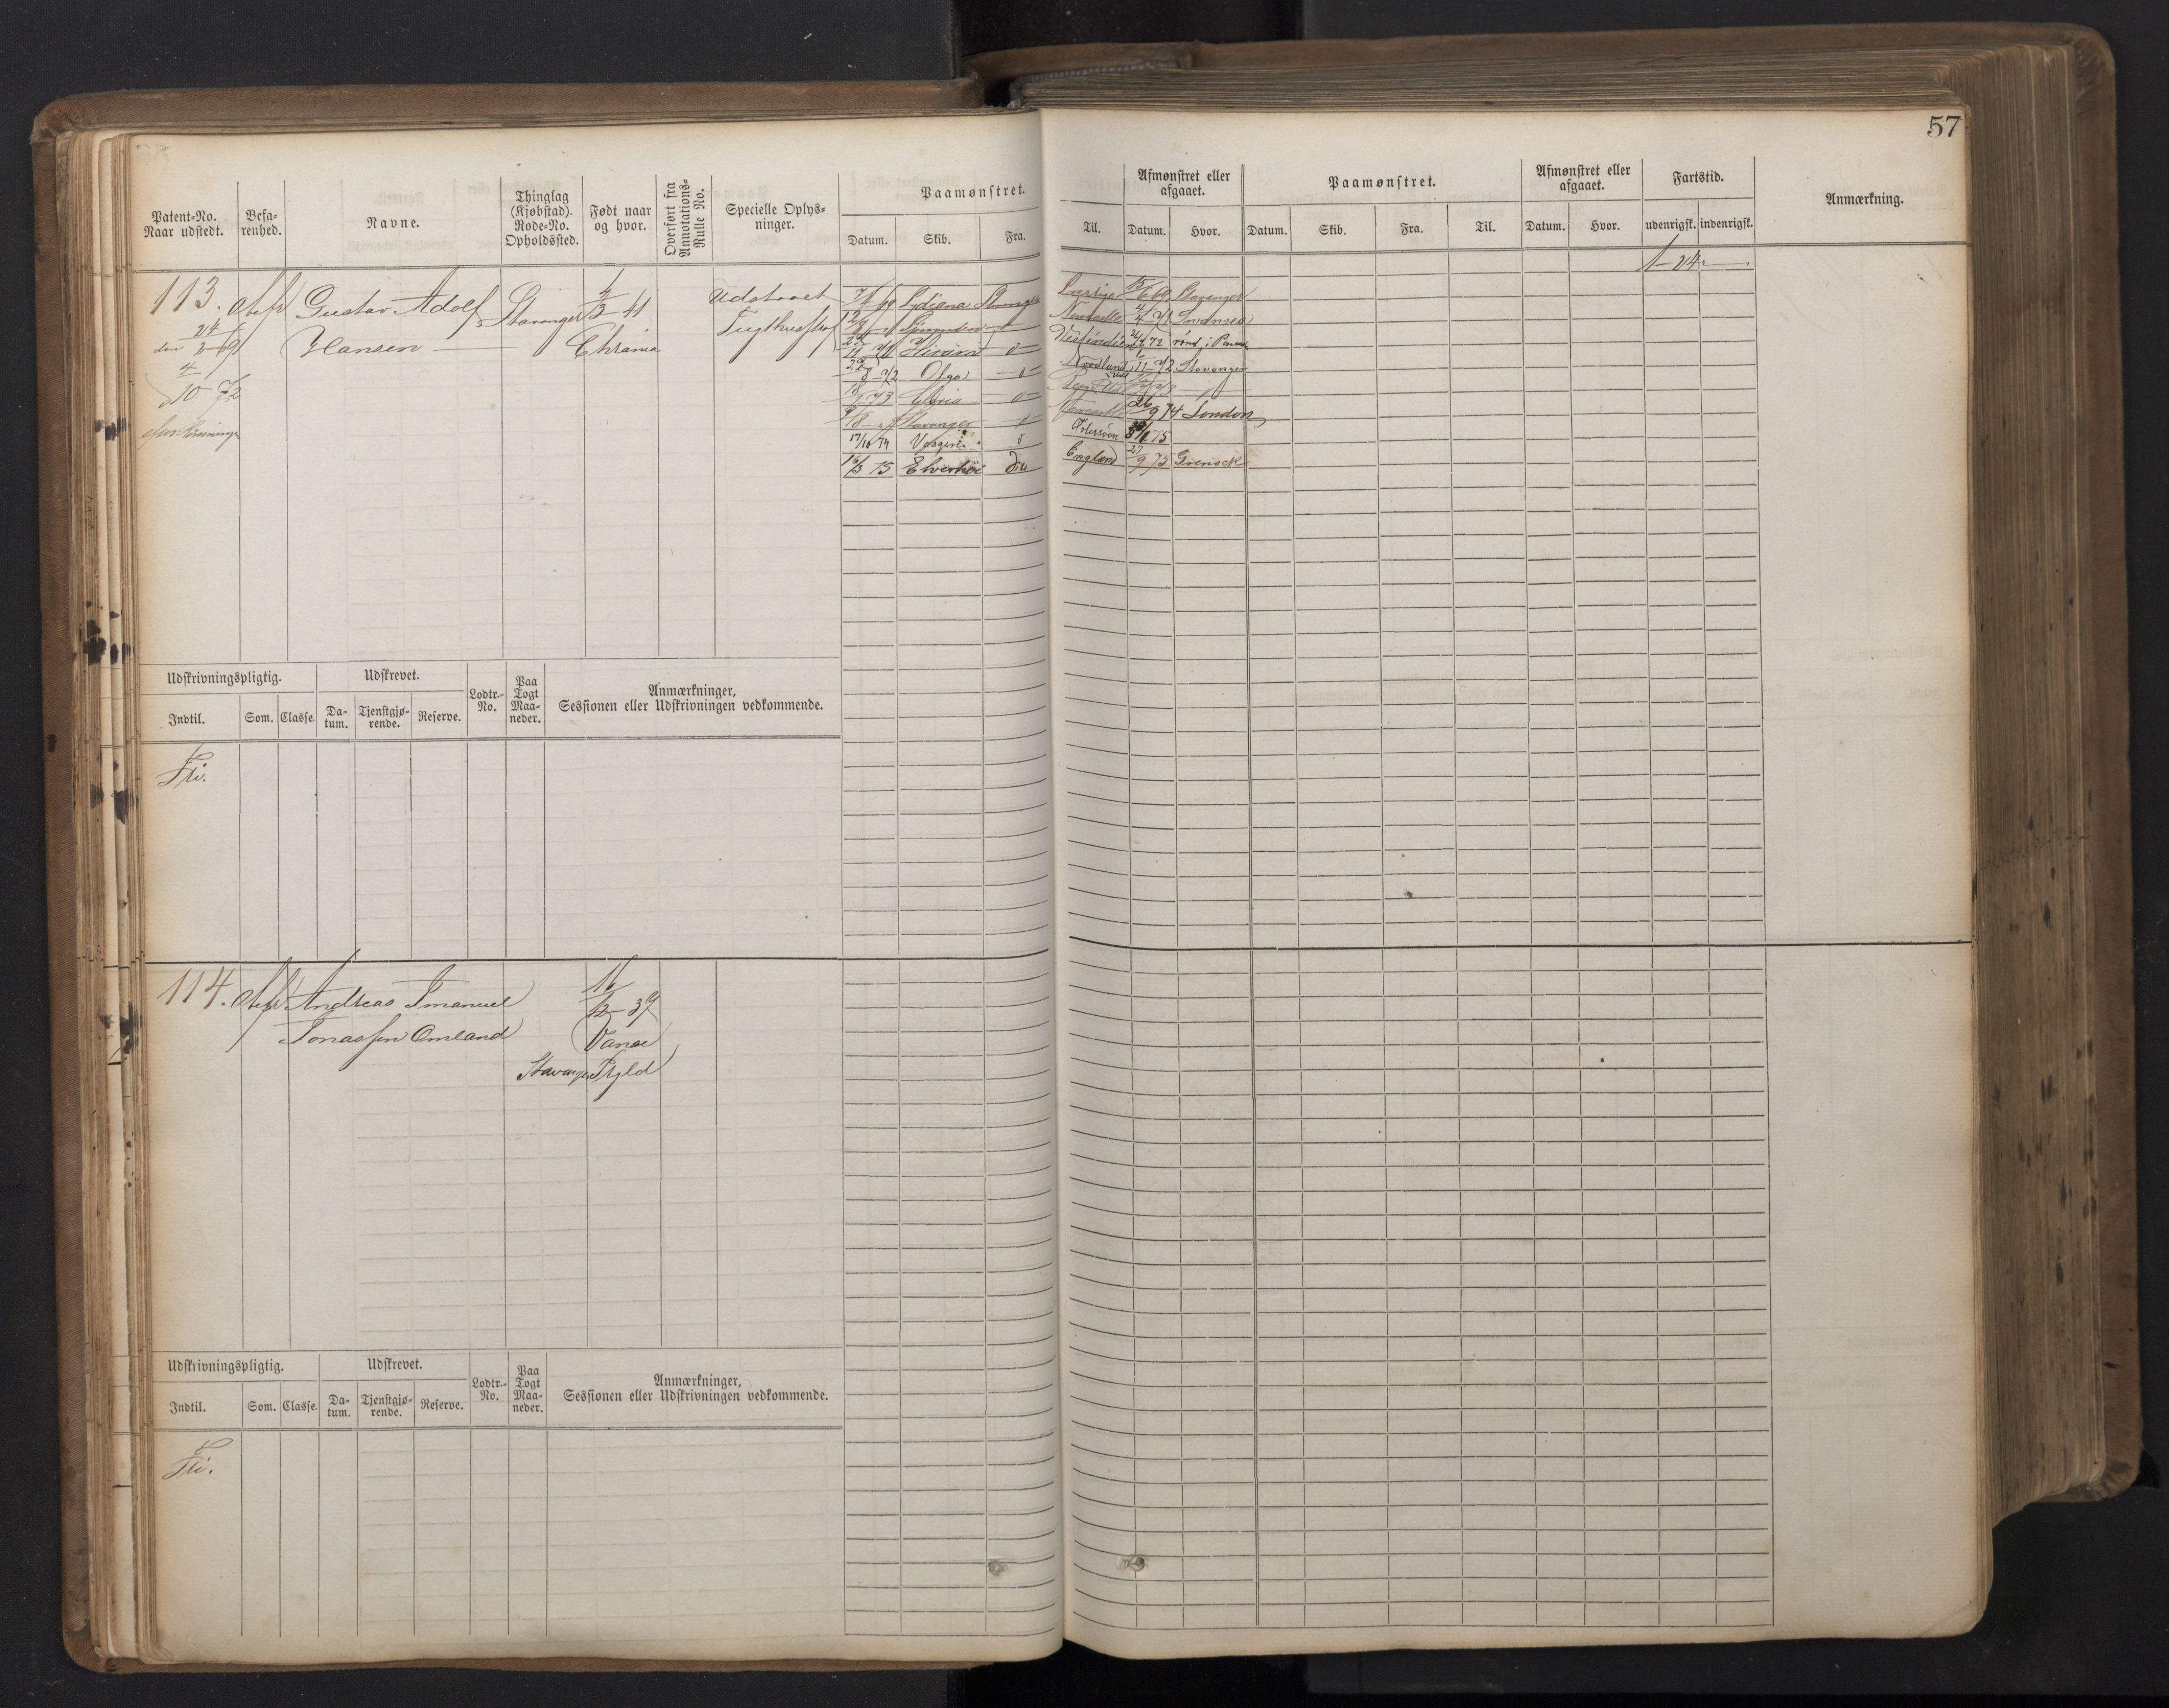 57
Patent-No.
Naar udstedt.
Befa-
renhed.
Navne.
Thinglag
(Kjøbstad).
Rode-No.
Opholdssted.
Født naar
og hvor.
Overført fra
Annotations-
Rulle No.
Specielle Oplys-
ninger.
Paamønstret.
Datum. Skib. Fra.
Til.
Afmønstret eller
afgaaet.
Datum. Hvor.
Paamønstret.
Datum. Skib. Fra. Til.
Afmønstret eller
afgaaet.
Datum. Hvor.
Fartstid.
udenrigsk. indenrigsk.
Anmærkning.
113.
24/2 69
4/10 72
Gustav Adolf
Hansen
Stavanger
4/3 41
Chrania
Udstaaet
Lydiana
Sverige 69 Stavanger
Newcastle 4/4 71 Swansea
Vestindien 72
22/8 72 Olga
Nordland 11 72 Stavanger
73 Gloria
Stavanger
Newcastle 26/9 74 London
17/10 74
Østersøen 75
16/5 75 Elverhöi Do
England 27/9 75 Grenock
Udskrivningspligtig.
Indtil. Som. Classe.
Udskrevet.
Da-
tum.
Tjenstgjø-
rende.
Reserve.
Lodtr.-
No.
Paa
Togt
Maa-
neder.
Anmærkninger,
Sessionen eller Udskrivningen vedkommende.
Fri.
114.
Andreas Imanuel
Jonassen Omland
16/12 39
Vanse
Stavanger
Udskrivningspligtig.
Indtil. Som. Classe.
Udskrevet.
Da-
tum.
Tjenstgjø-
rende.
Reserve.
Lodtr.-
No.
Paa
Togt
Maa-
neder.
Anmærkninger,
Sessionen eller Udskrivningen vedkommende.
Fri.